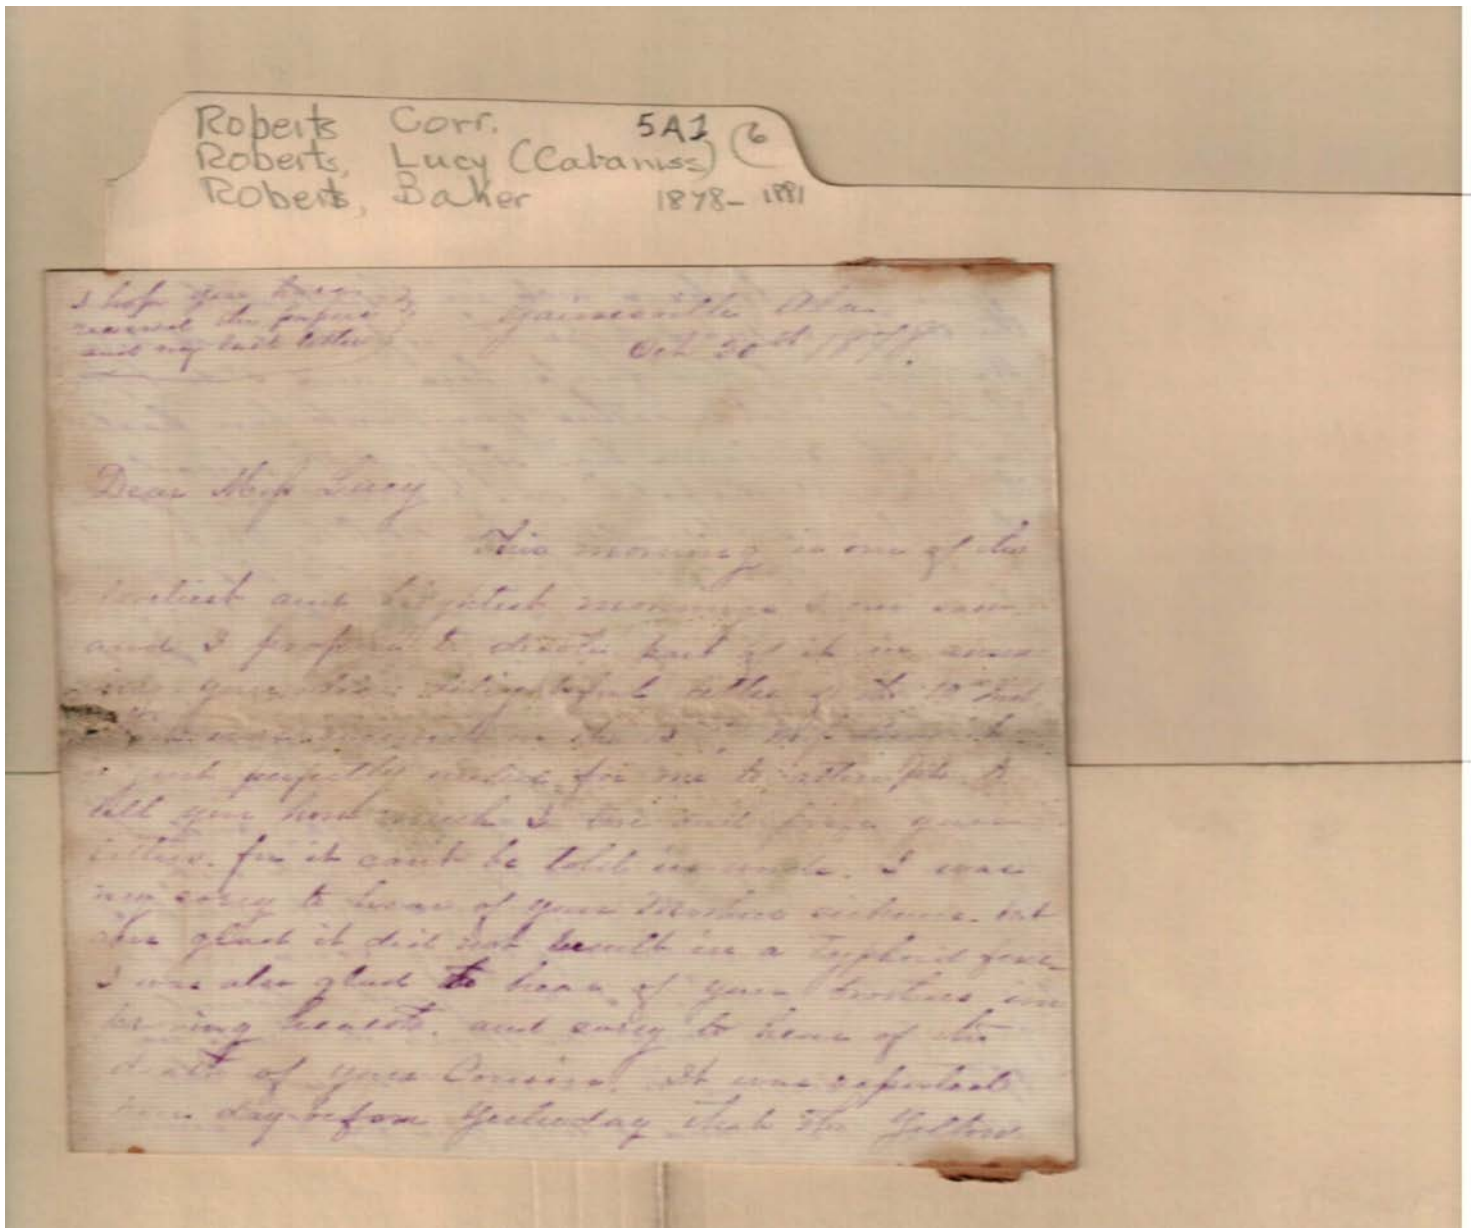 Roberts Corr. 5A1 (6
Roberts, Lucy (Cabaniss)
Roberts, Baker 1878-1881
I hope you have
received the papers
and my last letter
Gainesville Ala.
Oct 20th 1878
Dear Miss Lucy
This morning is one of the
loveliest and brightest mornings I ever saw
and I propose to devote part of it in answ
your delightful letter of the
is just perfectly useless for me to attempt to
tell you how much I and prize your
letters. for it can't be told in words. I was
very sorry to hear of your sickness. but
am glad it did not result in a Typhoid fever
I was also glad to hear of your brothers im
proving health. and sorry to hear of the
death of your Cousin. It was reported
here day before yesterday that the Yellow